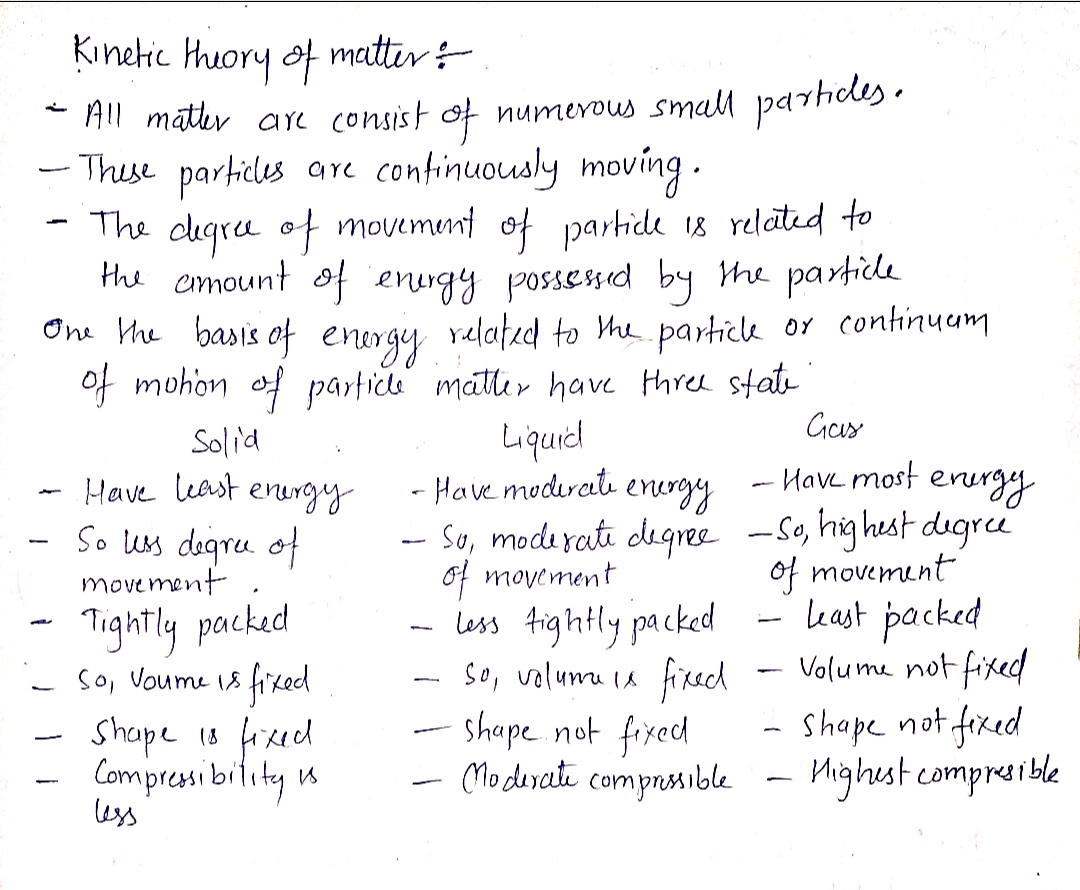 Kinetic theory of matter :-
- All matter are consist of numerous small particles.
- These particles are continuously moving.
- The degree of movement of particle is related to
the amount of energy possessed by the particle
One the basis of energy related to the particle or continuam
of motion of particle matter have three state
Solid Liquid Gas
- Have least energy - Have moderate energy - Have most energy
- So less degree of - So, moderate degree - So, highest degree
movement. of movement of movement
- Tightly packed - less tightly packed - least packed
- So, Voume is fixed - So, volume is fixed - Volume not fixed
- Shape is fixed - Shape not fixed - Shape not fixed
- Compressibility is - Moderate compressible - Highest compresible
less